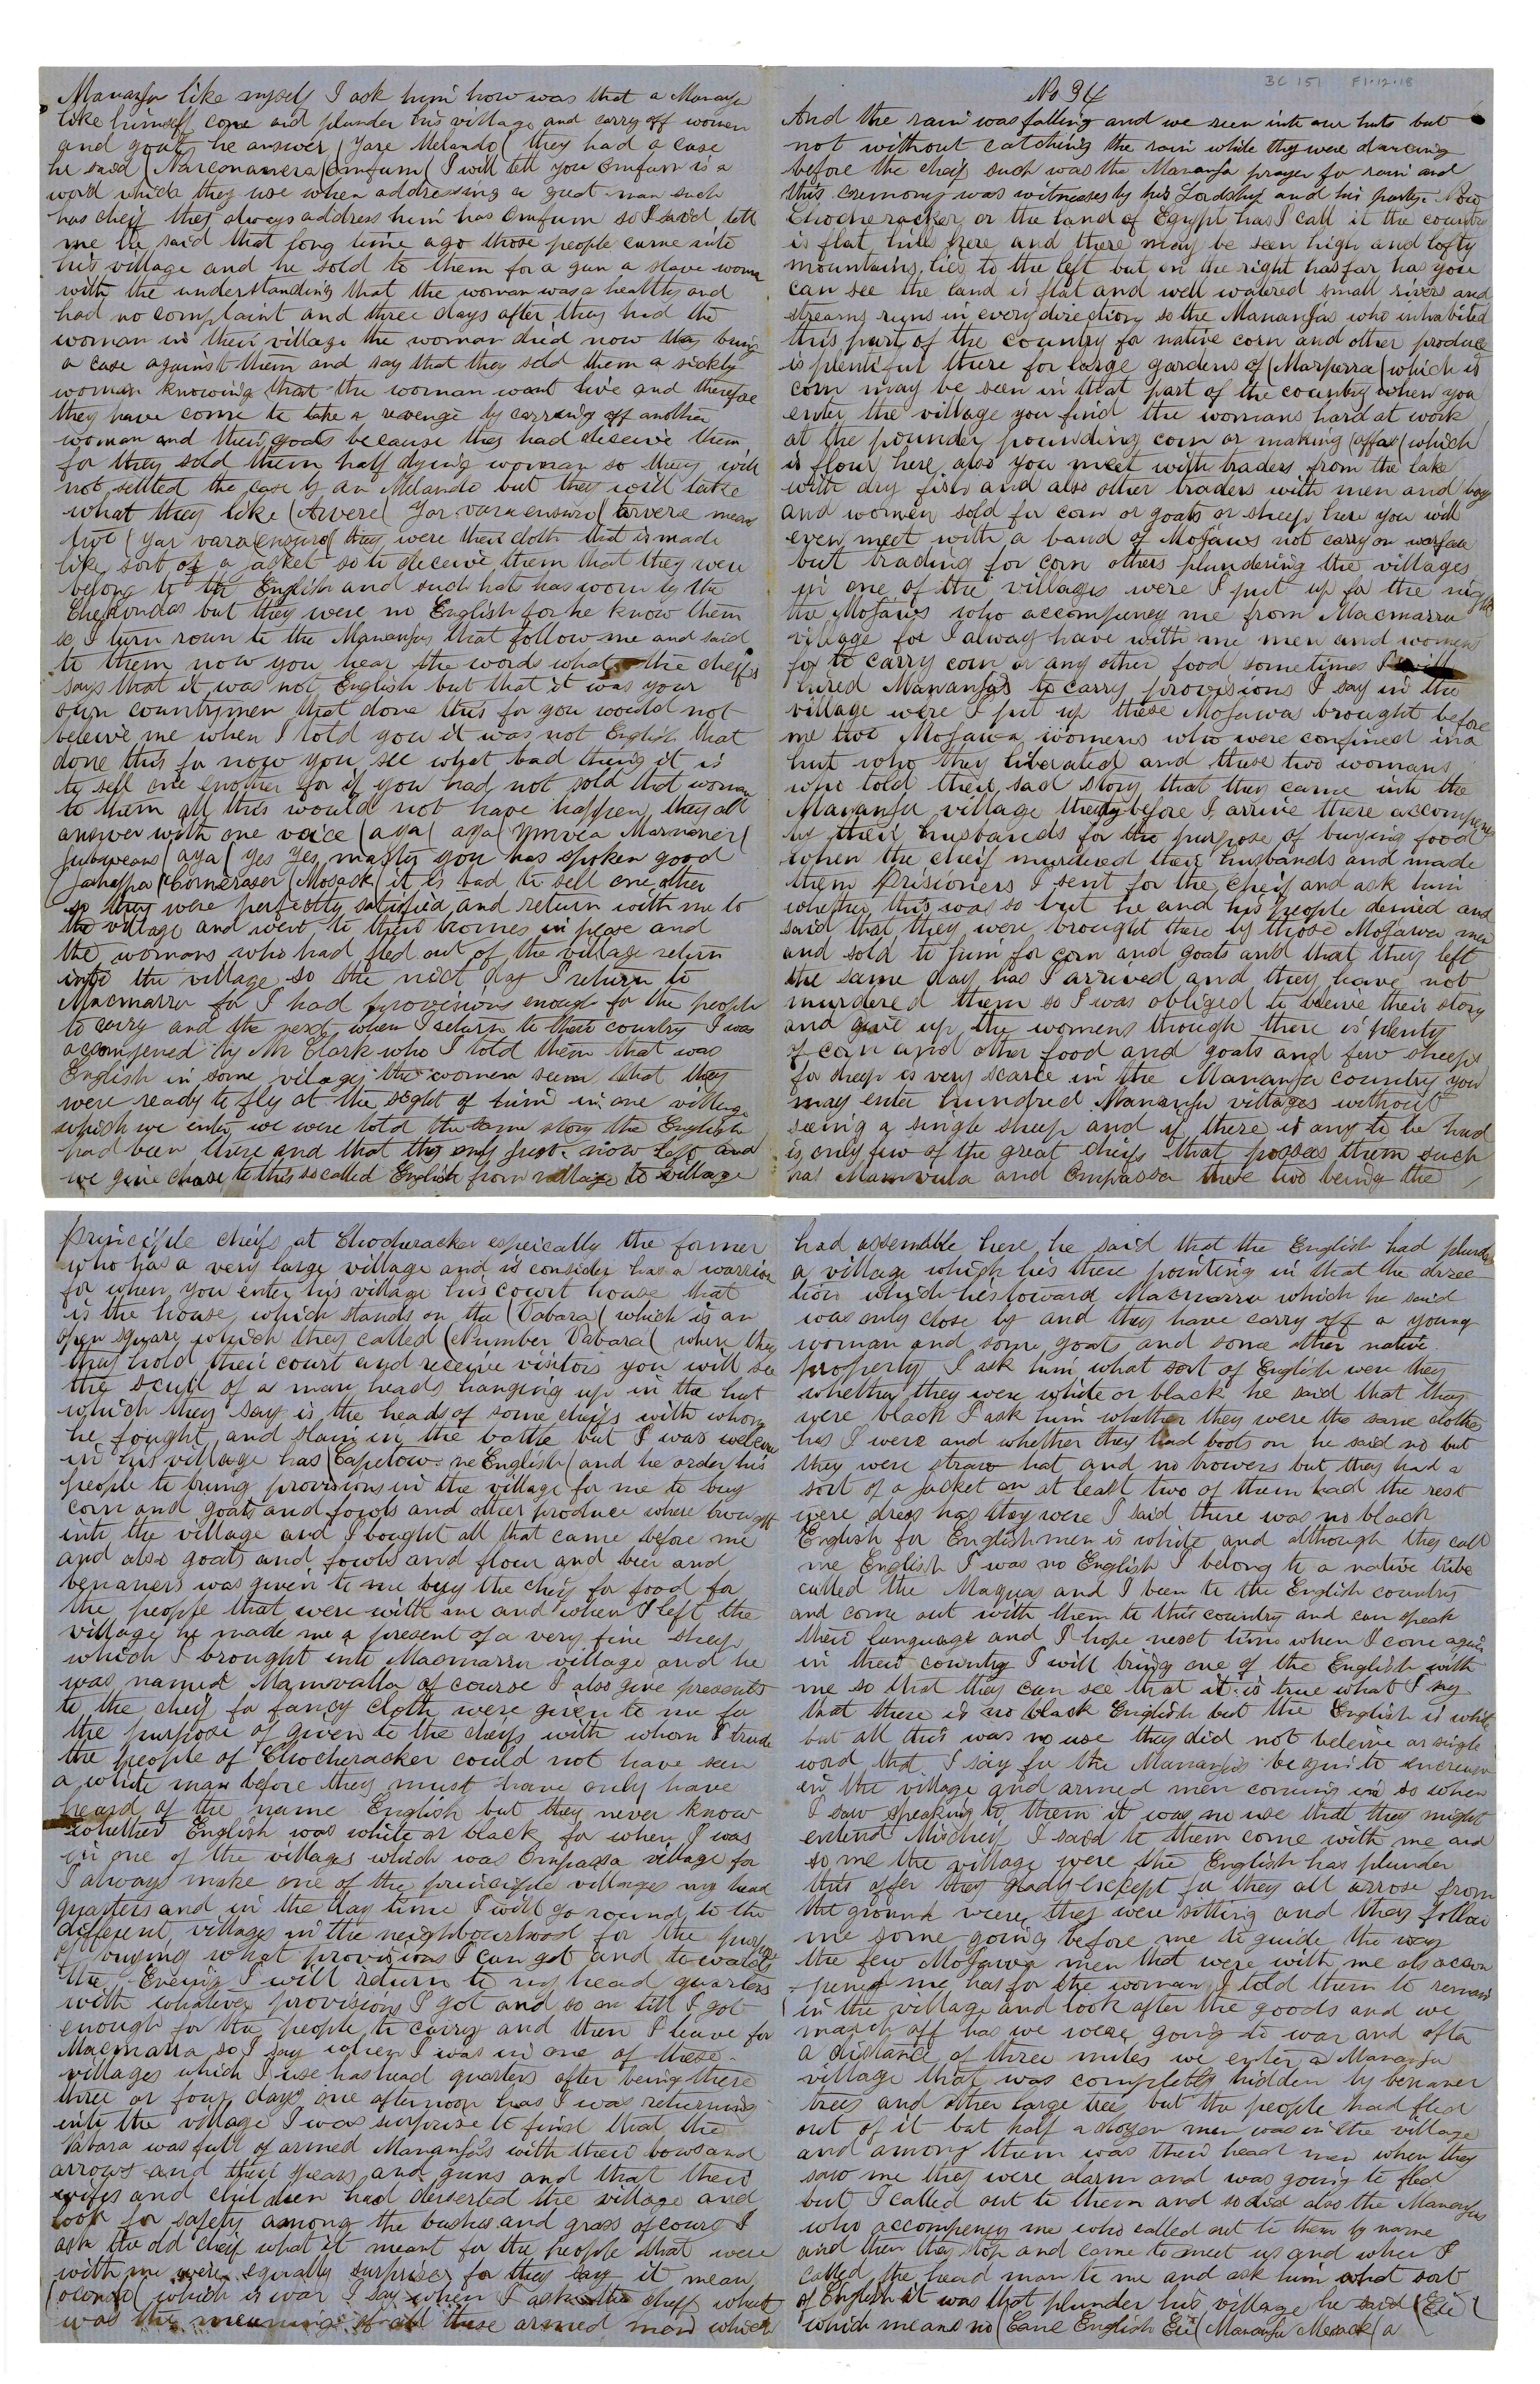 BC 151 F1.12.18
No 34
And the rain was falling and we reen into our huts but
not without catching the rain while they were dancing
before the cheif such was the Mananja prayer for rain and
this cremony was witnesses by his Lordship and his party. Now
Chocheracker or the land of Egypt has I call it the country
is flat hills here and there may be seen high and lofty
mountains lies to the left but on the right has far has you
can see the land is flat and well watered small rivers and
streams runs in every direction so the Mananjas who inhabited
this part of the country for native corn and other produce
is plentiful there for large gardens of (Marperra( which is
corn may be seen in that part of the country when you
enter the village you find the womans hard at work
at the pounder pounding corn or making (offar( which
is flour here also you meet with traders from the lake
with dry fish and also other traders with men and boys
and women sold for corn or goats or sheep here you will
even meet with a band of Mojaws not carry on warfare
but trading for corn others plundering the villages
in one of the villages were I put up for the night
the Mojaws who accompeney me from Macmarra
village for I alway have with me men and womens
for to carry corn or any other food sometimes I
hired Mananjas to carry provisions I say in the
village were I put up these Mojawa brought before
me two Mojawa womens who were confined in a
hut who they liberated and these two womans
who told their sad story that they came into the
Mananja village the day before I arrive there accompeney
by their husbands for the purpose of buying food
when the cheif murdered their husbands and made
them prisioners I sent for the cheif and ask him
whether this was so but he and his people denied and
said that they were brought there by those Mojawa men
and sold to him for corn and goats and that they left
the same day has I arrived and they have not
murdered them so I was obliged to bleive their story
and give up the womens though there is plenty
of corn and other food and goats and few sheeps
for sheep is very scarce in the Mananja country you
may enter hundred Mananja villages without
seeing a single sheep and if there is any to be had
is only few of the great cheifs that possess them such
has Mamvula and Ompassa these two being the
principle cheifs at Chocheracker espeically the former
who has a very large village and is consider has a warrior
for when you enter his village his court house that
is the house which stands on the (Vabara( which is an
open square which they called (Number Vabara( where they
they hold their court and receive visitors you will see
the scull of a man heads hanging up in the hut
which they say is the heads of some cheifs with whom
he fought and slain in the battle but I was welcome
in his village has (Capetow ne English( and he order his
people to bring provisions in the village for me to buy
corn and goats and fowls and other produce where brought
into the village and I bought all that came before me
and also goats and fowls and flour and beer and
benaners was given to me byy the cheif for food for
the people that were with me and when I left the
village he made me a present of a very fine sheep
which I brought into Macmarra village and he
was named Mamvalla of course I also give presents
to the cheif for fancy cloth were given to me for
the purpose of given to the cheifs with whom I trade
the people of Chocheracker could not have seen
a white man before they must have only have
heard of the name English but they never know
whether English was white or black for when I was
in one of the villages which was Ompassa village for
I always make one of the principle villages my head
quarters and in the day time I will go round to the
different villages in the neighbourhood for the purpose
of buying what provisions I can got and towards
the Evening I will return to my head quarters
with whatever provisions I got and so on till I got
enough for the people to carry and then I leave for
Macmarra so I say when I was in one of these
villages which I use has head quarters after being there
three or four days one afternoon has I was returning
into the village I was surprise to find that the
Vabara was full of armed Mananjas with their bows and
arrows and their spears and guns and that their
wifes and children had desserted the village and
look for safety among the bushes and grass of course I
ask the old cheif what it meant for the people that were
with me were equally surprise for they say it mean
(oconda( which is war I say when I ask the cheif what
was the meaning of all these armed men which
had assemble here he said that the English had plunder
a village which lies there pointing in that the direc-
tion which lies toward Macmarra which he said
was only close by and they have carry off a young
woman and some goats and some other native
property I ask him what sort of English were they
whether they were white or black he said that they
were black I ask him whether they were the same clothes
has I were and whether they had boots on he said no but
they were straw hat and no trowers but they had a
sort of a jacket on at least two of them had the rest
were dress has they were I said there was no black
English for Englishmen is white and although they call
me English I was no English I belong to a native tribe
called the Maquas and I been to the English country
and come out with them to this country and can speak
their language and I hope next time when I come again
in their country I will bring one of the English with
me so that they can see that it is true what I say
that there is no black English but the English is white
but all this was no use they did not beleive ar single
word that I say for the Mananjas begun to increase
in the village and armed men coming in so when
I saw speaking to them it was no use that they might
entend mischeif I said to them come with me and
so me the village were the English has plunder
this offer they gladly except for they all arrose from
the ground were they were sitting and they follow
me some going before me to guide the way
the few Mojawa men that were with me als accom
-pened me has for the woman I told them to remain
in the village and look after the goods and we
march off has we were going to war and after
a distance of three miles we enter a Mananja
village that was completly hidden by benaner
trees and other large trees but the people had fled
out of it but half a dozen men was in the village
and among them was their head man when they
saw me they were alarm and was going to fled
but I called out to them and so did also the Mananjas
who accompeney me who called out to them by name
and then they stop and came to meet us and when I
called the head man to me and ask him what sort
of English it was that plunder his village he said (Eii(
which means no (Cane English Eii( Mananja Mesack( a
Mananja like myself I ask him how was that a Mananja
like himself come and plunder his village and carry off women
and goats he answer (Yare Melando( they had a case
he said (Narconanera(Omfum( I will tell you Omfum is a
word which they use when addressing a great man such
has cheif they always address him has Omfum so I said tell
me he said that long time ago those people came into
his village and he sold to them for a gun a slave woman
with the understanding that the woman was a healthy and
had no complaint and three days after they had the
woman in their village the woman died now they bring
a case against them and say that they sold them a sickly
woman knowing that the woman want live and therefore
they have come to take a revenge by carring off another
woman and their goats because they had deceive them
for they sold them half dying woman so they will
not settled the case by an Melando but they will take
what they like (Awere( Yar vara ensuro( awere means
two (Yar vara ensuro( they were their cloth that is made
like sort of a jacket so to deceive them that they were
belong to the English and such hats has worn by the
Checundas but they were no English for he know them
so I turn roun to the Mananjas that follow me and said
to them now you hear the words what the cheifs
says that it was not English but that it was your
own countrymen that done this for you would not
beleive me when I told you it was not English that
done this for now you see what bad thing it is
to sell one enother for if you had not sold that woman
to them all this would not have happen they all
answer with one voice (aya( aya( Ymvea Marmaner(
(aya( yes yes masty you has spoken good
(Mosack( it is bad to sell one other
so they were perfectly satisfied and return with me to
the village and went to their homes in peace and
the womans who had fled out of the village return
into the village so the next day I return to
Macmarra for I had provisions enough for the people
to carry and the next when I return to their country I was
accompened by Mr Clark who I told them that was
English in some vilages the women seem that they
were ready to fly at the sight of him in one village
which we enter we were told the same story the English
had been there and that they only just now left and
we give chase to this so called English from village to village